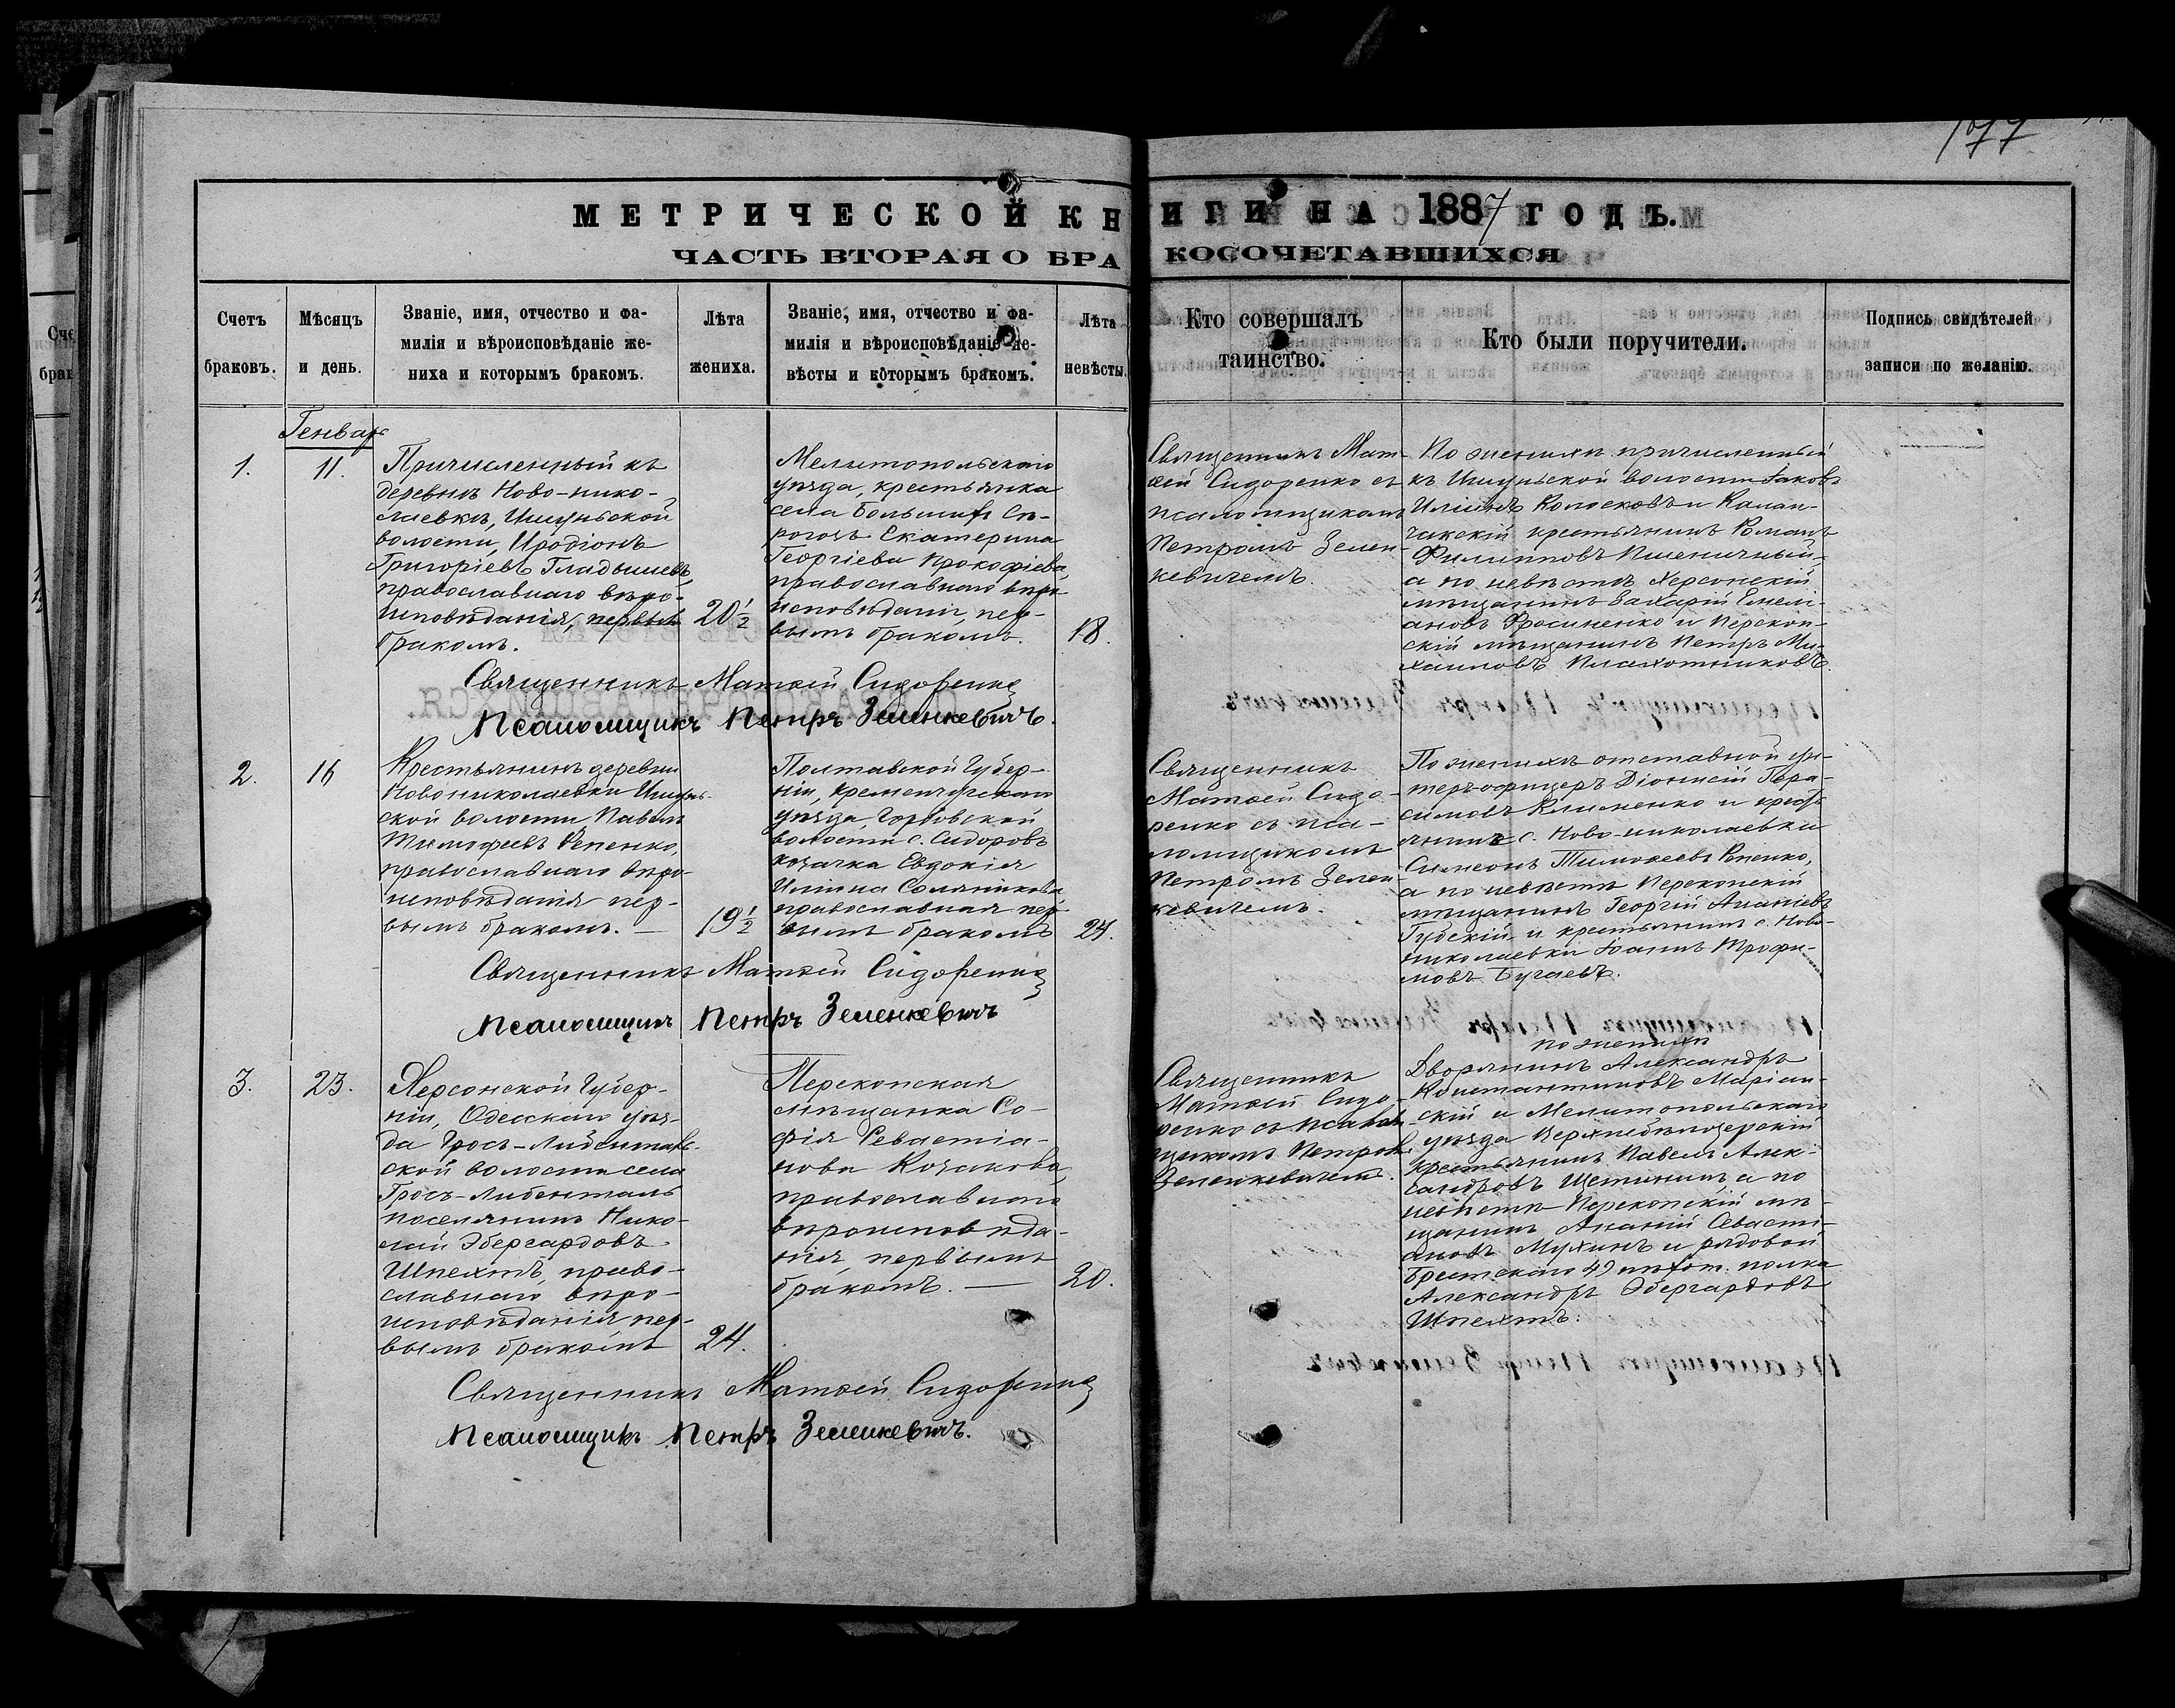 1077
МЕТРИЧЕСКОЙ КНИГИ НА 1887 ГОДЪ.
ЧАСТЬ ВТОРАЯ О БРАКОСОЧЕТАВШИХСЯ
Счетъ браковъ.
Мѣсяцъ и день.
Званіе, имя, отчество и фа-
милія и вѣроисповѣданіе же-
ниха и которымъ бракомъ.
Лѣта жениха.
Званіе, имя, отчество и фа-
милія и вѣроисповѣданіе не-
вѣсты и которымъ бракомъ.
Лѣта невѣсты.
Кто совершалъ
таинство.
Кто были поручители.
Подпись свидѣтелей
записи по желанію.
Генварь
1.
11.
Причисленный къ
деревнѣ Ново-нико-
лаевкѣ, Ишуньской
волости, Иродіонъ
Григоріевъ Гладышевъ,
православнаго вѣро-
исповѣданія, первымъ
бракомъ.
20 1/2
Мелитопольскаго
уѣзда, крестьянка
села Большихъ Сѣ-
рогозъ Екатерина
Георгіева Прокофіева,
православнаго вѣро
исповѣданія, пер-
вымъ бракомъ.
18.
Священникъ Мат-
ѳей Сидоренко съ
псаломщикомъ
Петромъ Зелен-
кевичемъ.
По женихѣ причисленный
къ Ишуньской волости Іаковъ
Иліинъ Колосковъ и Калан-
чакскій крестьянинъ Романъ
Филипповъ Пшеничный,
а по невѣстѣ Херсонскій
мѣщанинъ Захарій Емелі-
ановъ Фросиненко и Перекоп-
скій мѣщанинъ Петръ Ми-
хаиловъ Плахотниковъ.
Священникъ Матѳей Сидоренко
Псаломщикъ Петръ Зеленкевичъ.
2.
16
Крестьянинъ деревни
Новониколаевки Ишунь-
ской волости Павелъ
Тимофеевъ Репенко,
православнаго вѣро
исповѣданія пер-
вымъ бракомъ.
19 1/2
Полтавской Губер-
ніи, Кременчугскаго
уѣзда,
волости с. Сидоровъ
козачка Евдокія
Иліина Солянikова
православная пер
вымъ бракомъ
24.
Священникъ
Матѳей Сидо-
ренко съ пса-
ломщикомъ
Петромъ Зелен-
кевичемъ.
По женихѣ отставной ун-
теръ-офицеръ Діонисій Гера-
симовъ Клименко и кресть
янинъ с. Ново-николаевки
Симеонъ Тимоѳеевъ Репенко,
а по невѣстѣ Перекопскій
мѣщанинъ Георгій Ананіевъ
Губскій и крестьянинъ с. Ново-
николаевки Іоаннъ Трофи-
мовъ Бугаевъ.
Священникъ Матѳей Сидоренко
Псаломщикъ Петръ Зеленкевичъ
3.
23.
Херсонской Губер-
ніи, Одесскаго уѣз-
да Гросъ-Либентальс-
ской волости села
Гросъ-Либенталь
поселянинъ Нико-
лай Эбергардовъ
Шпехтъ, право-
славнаго вѣро-
исповѣданія пер-
вымъ бракомъ
24.
Перекопская
мѣщанка Со-
фія Севастіа-
нова Козакова,
православнаго
вѣроисповѣда-
нія, первымъ
бракомъ.
20.
Священникъ
Матѳей Сидо-
ренко съ псалом-
щикомъ Петромъ
Зеленкевичемъ.
по женихѣ
Дворянинъ Александръ
Константиновъ Маріан-
скій и Мелитопольскаго
уѣзда Верхнебѣлозерскій
крестьянинъ Павелъ Алек-
сандровъ Щетининъ, а по
невѣстѣ Перекопскій мѣ
щанинъ Ананій Севасті-
ановъ Мухинъ и рядовой
Брестскаго 49 пѣхот. полка
Александръ Эбергардовъ
Шпехтъ.
Священникъ Матѳей Сидоренко
Псаломщикъ Петръ Зеленкевичъ.